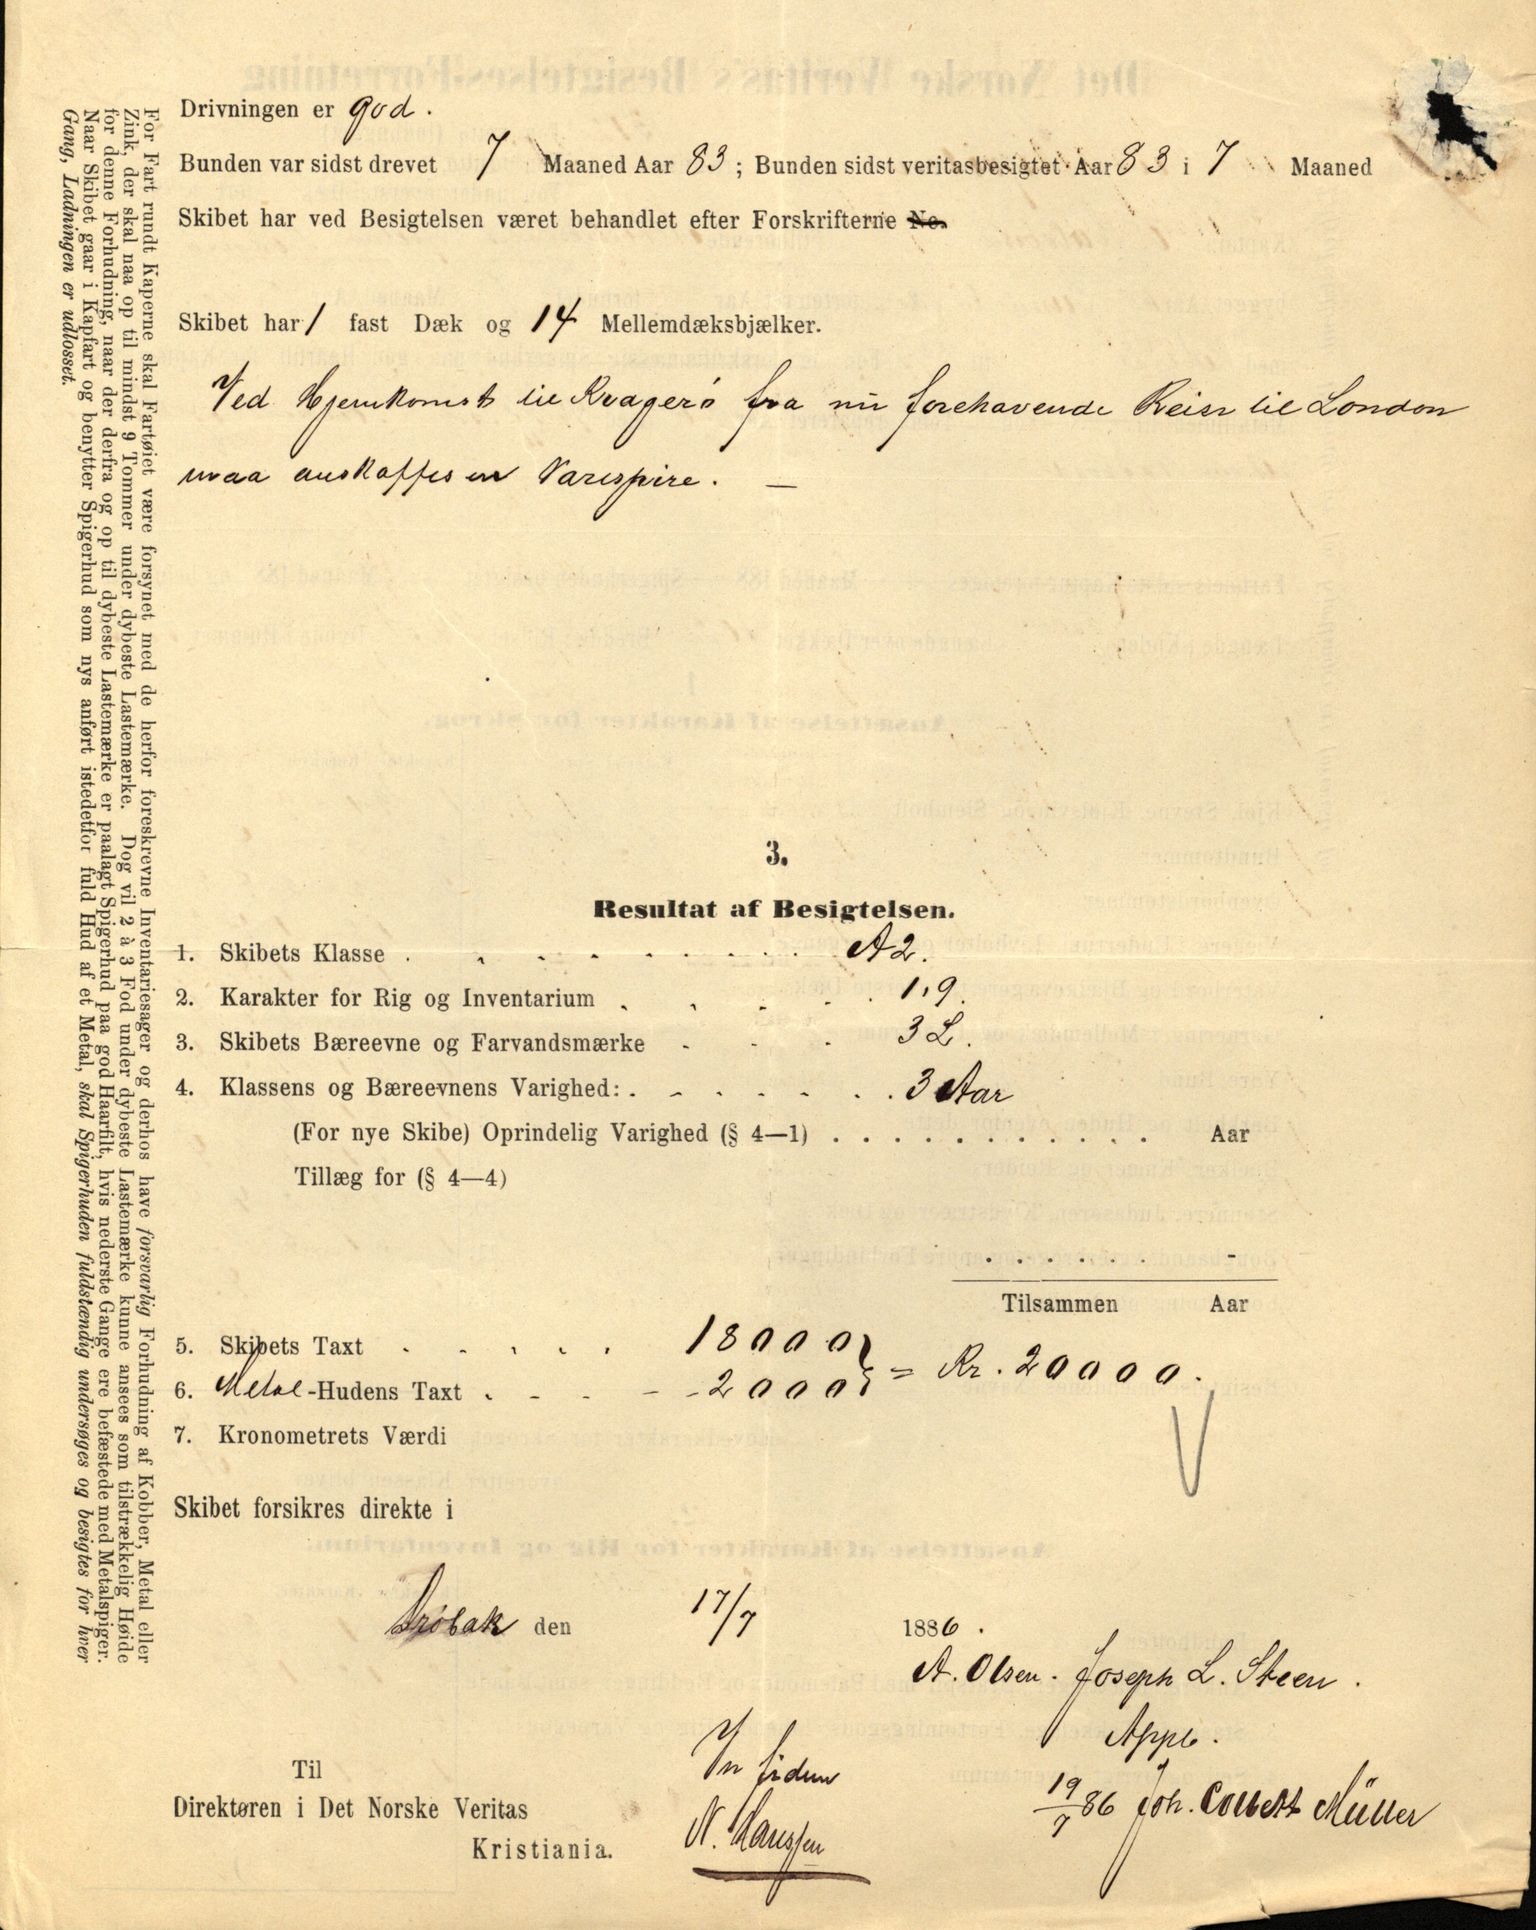 Drivningen er god.
Bunden var sidst drevet 7 Maaned Aar 83; Bunden sidst veritasbesigtet Aar 83 i 7 Maaned
Skibet har ved Besigtelsen været behandlet efter Forskrifterne No.
Skibet har 1 fast Dæk og 14 Mellemdæksbjælker.
Ved Hjemkomst til Kragerø fra nu forehavende Reise til London
maa anskaffes en Varespire. —
3.
Resultat af Besigtelsen.
1. Skibets Klasse . . . . . . . . A2.
2. Karakter for Rig og Inventarium . . . . 1,9.
3. Skibets Bæreevne og Farvandsmærke - - - 3 L.
4. Klassens og Bæreevnens Varighed: . . . . . . 3 Aar
(For nye Skibe) Oprindelig Varighed (§ 4—1) . . . . . . . . . . . Aar
Tillæg for (§ 4—4)
. . . . . . -
Tilsammen Aar
5. Skibets Taxt . . . . . 18000
6. Metal-Hudens Taxt . - - - - 2000 } = Kr. 20000.
7. Kronometrets Værdi
Skibet forsikres direkte i
Drøbak den 17/7 1886.
A. Olsen. Joseph L. Steen.
Appb.
In fidem
19/7 86 Joh. Collett Müller
N. Hanssen
Til
Direktøren i Det Norske Veritas
Kristiania.
For Fart rundt Kaperne skal Fartøiet være forsynet med de herfor foreskrevne Inventariesager og derhos have forsvarlig Forhudning af Kobber, Metal eller
Zink, der skal naa op til mindst 9 Tommer under dybeste Lastemærke. Dog vil 2 à 3 Fod under dybeste Lastemærke kunne ansees som tilstrækkelig Høide
for denne Forhudning, naar der derfra og op til dybeste Lastemærke er paalagt Spigerhud paa god Haarfilt, hvis nederste Gange ere befæstede med Metalspiger.
Naar Skibet gaar i Kapfart og benytter Spigerhud som nys anført istedetfor fuld Hud af et Metal, skal Spigerhuden fuldstændig undersøges og besigtes for hver
Gang, Ladningen er udlosset.